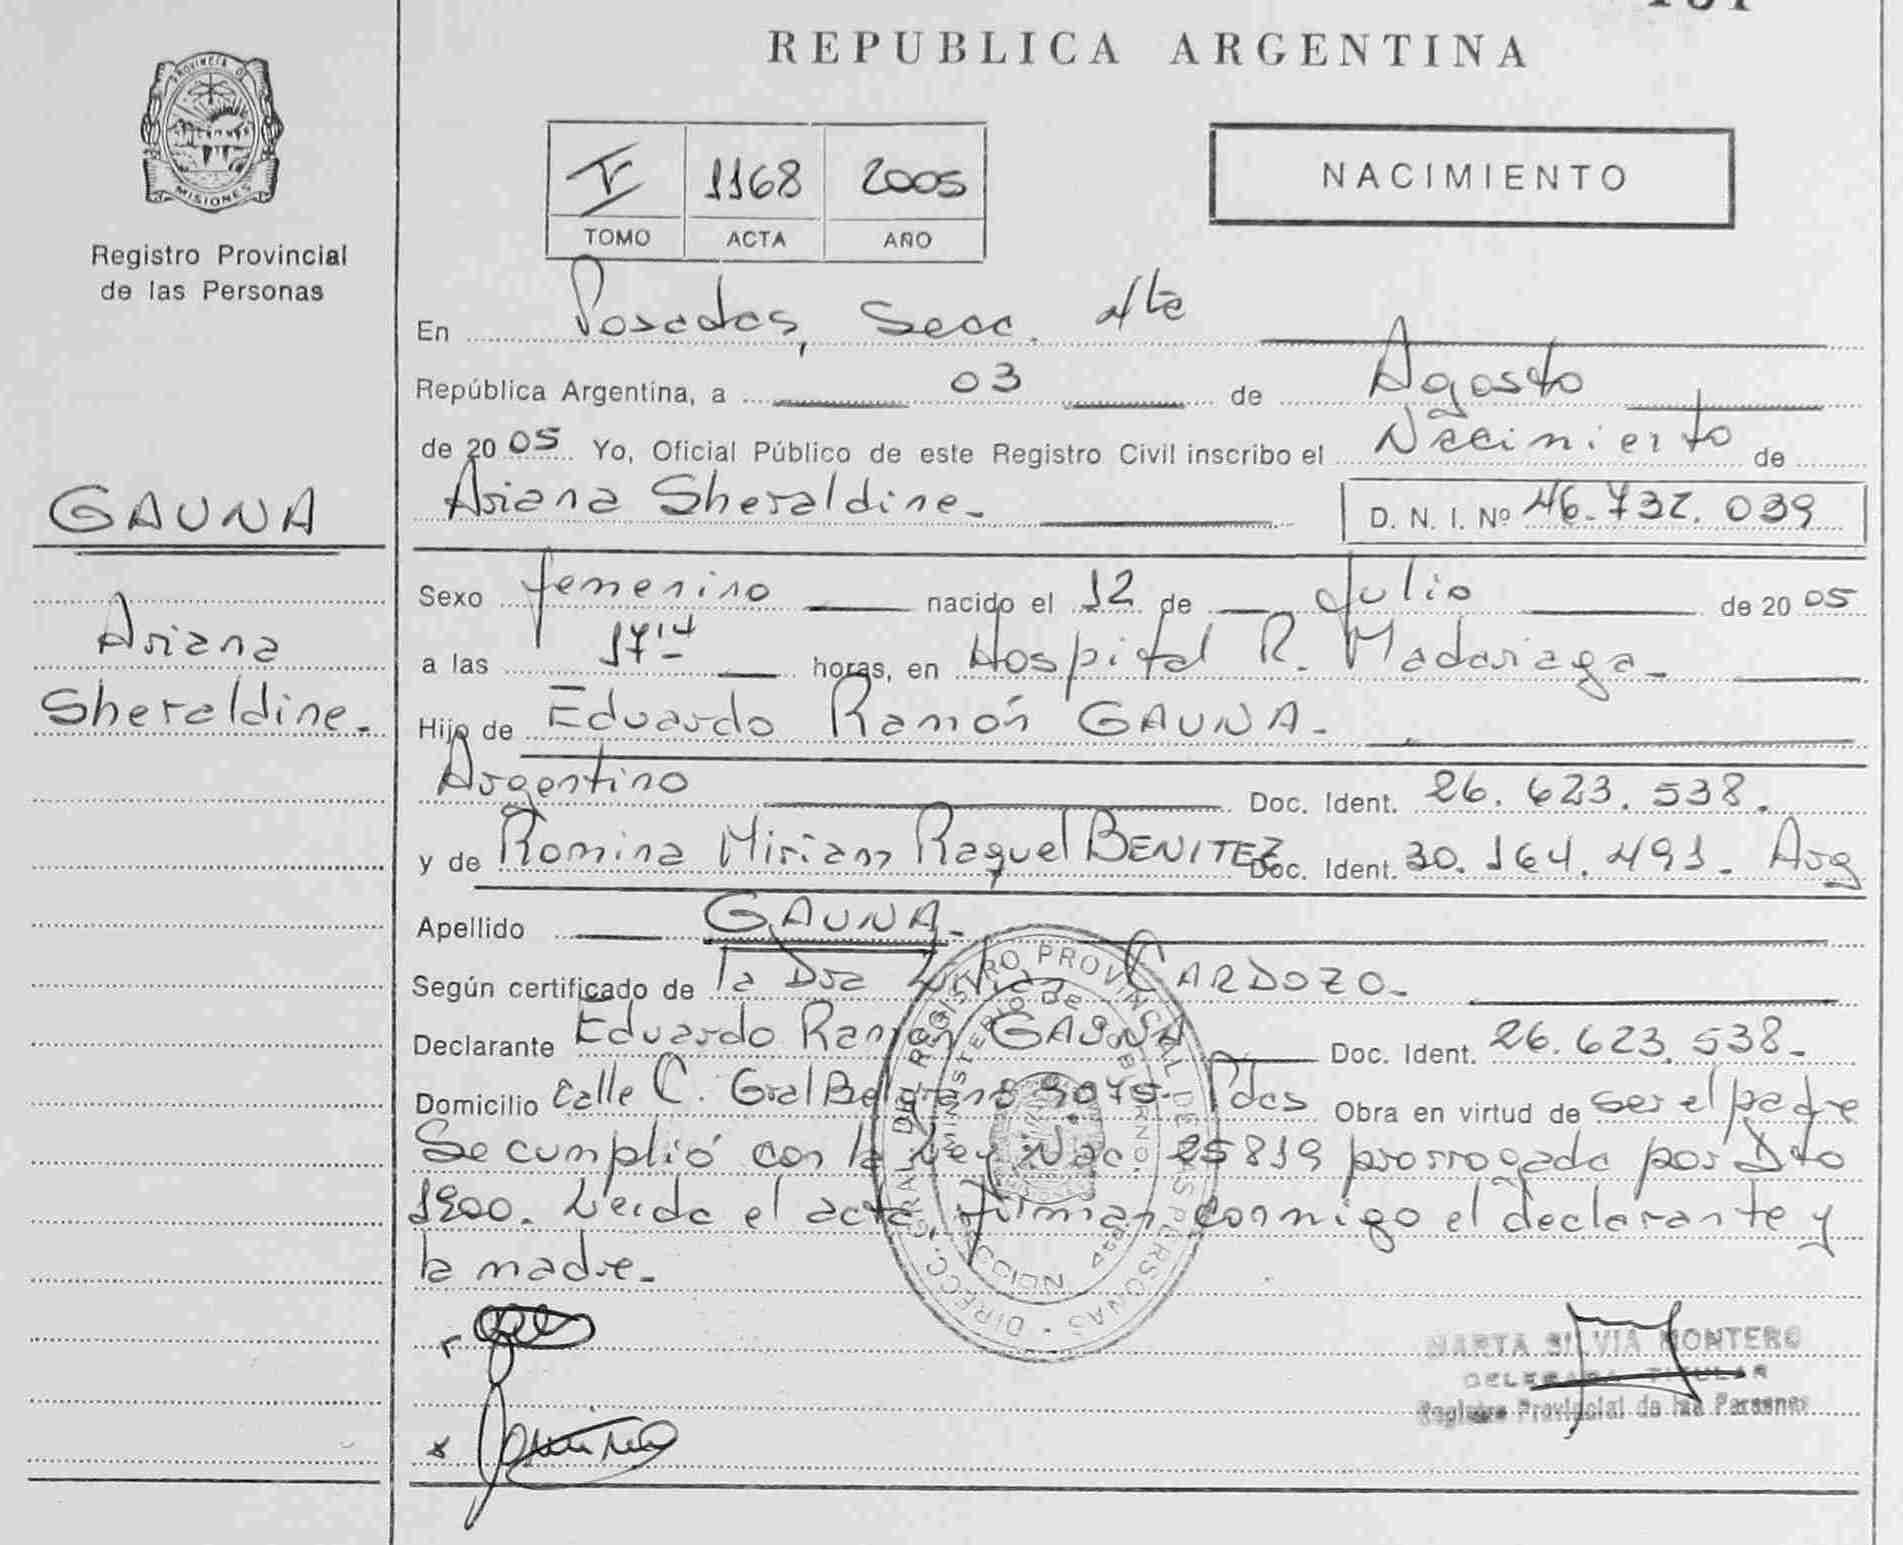 REPUBLICA ARGENTINA
PROVINCIA DE
MISIONES
Registro Provincial
de las Personas
1168 2005
TOMO ACTA AÑO
NACIMIENTO
En Posadas, Secc. 4ta
República Argentina, a 03 de Agosto
de 2005 Yo, Oficial Público de este Registro Civil inscribo el Nacimiento de
Ariana Sheraldine.- D. N. I. Nº 46.732.039
GAUNA
Ariana
Sheraldine.-
Sexo femenino nacido el 12 de Julio de 2005
a las 17 14 horas, en Hospital R. Madariaga-
Hijo de Eduardo Ramón GAUNA.-
Argentino Doc. Ident. 26.623.538.
y de Romina Miriam Raquel BENITEZ Doc. Ident. 30.164.491- Arg
Apellido GAUNA.-
Según certificado de la Dra CARDOZO.-
Declarante Eduardo Ramón GAUNA Doc. Ident. 26.623.538-
Domicilio Calle C. Gral Belgrano 3075- Pdas Obra en virtud de ser el padre
Se cumplió con la Ley Nac. 25819 prorrogada por Dto
1900. Leida el acta, firman conmigo el declarante y
la madre.-
DIRECC. GRAL. DEL REGISTRO PROVINCIAL DE LAS PERSONAS
MINISTERIO DE GOBIERNO
MARTA SILVIA MONTERO
DELEGADA TITULAR
Registro Provincial de las Personas